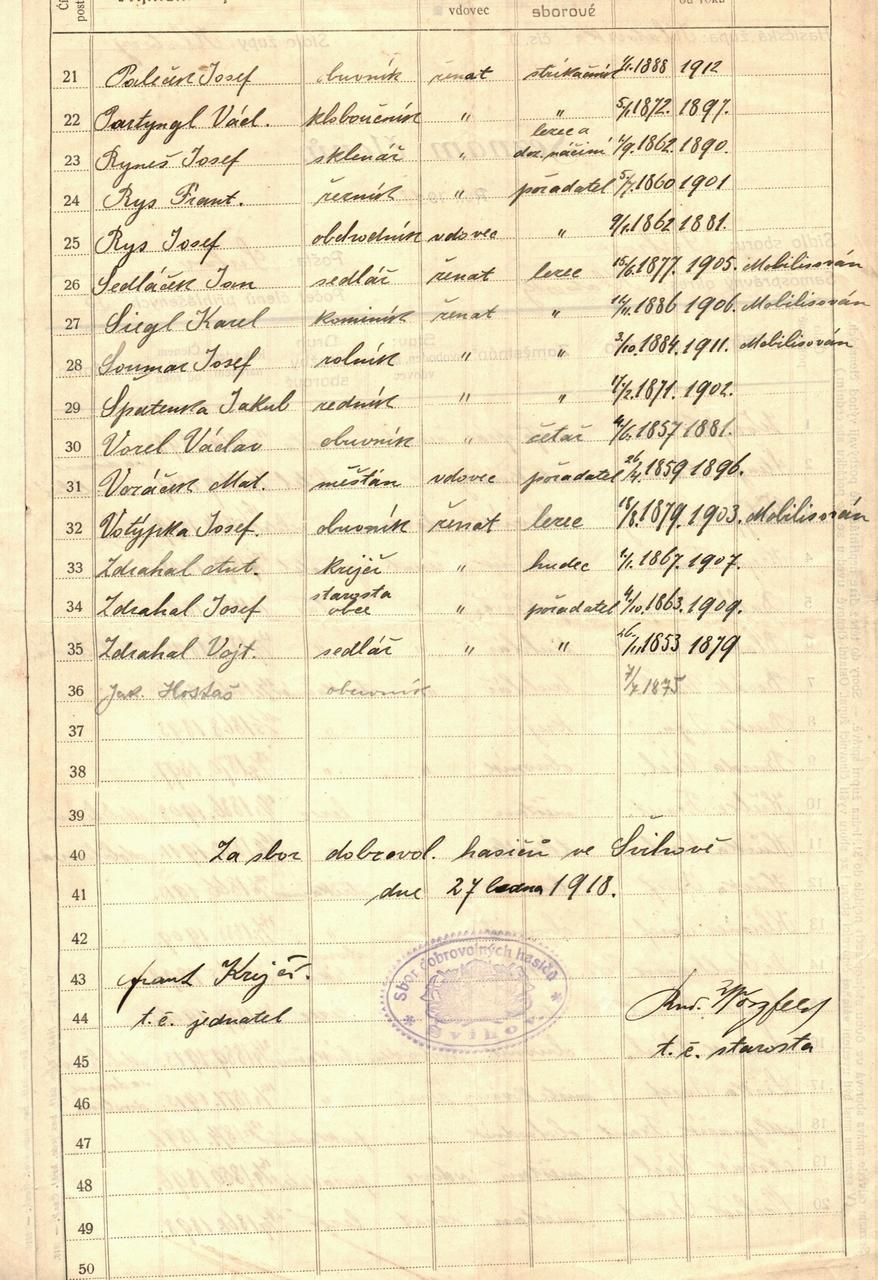 vdovec sborové od roku
21 Paleček Josef obuvník ženat stříkačník 1888 1912
22 Partyngl Václ. kloboučník " " 5/1.1872. 1897.
lezec a
23 Ryneš Josef sklenář " doz. náčiní 1/9.1862. 1890.
24 Rys Frant. řezník " pořadatel 5/7.1860 1901
25 Rys Josef obchodník vdovec " 9/1.1862 1881.
26 Sedláček Jan sedlář ženat lezec 15/6.1877. 1905. Mobilisován
27 Siegl Karel kominík ženat " 14/11.1886 1906. Mobilisován
28 Soumar Josef rolník " " 3/10.1884. 1911. Mobilisován
29 Spatenka Jakub zedník " " 17/2.1871. 1902.
30 Vorel Václav obuvník " četař 1857 1881.
31 Voráček Mat. měšťan vdovec pořadatel 26/4.1859 1896.
32 Votýpka Josef. obuvník ženat lezec 18/8.1879. 1903. Mobilisován
33 Zdrahal Ant. krejčí " hudec 1867. 1907.
starosta
34 Zdrahal Josef obce " pořadatel 1863. 1909.
35 Zdrahal Vojt. sedlář " " 26/11.1853 1879
36 Jak. Hostaš obuvník 7/7.1875
37
38
39
40 Za sbor dobrovol. hasičů ve Švihově
41 dne 27 ledna 1918.
42
Sbor dobrovolných hasičů
Švihov
43 Frant Krejčí.
44 t. č. jednatel
Rud.
45 t. č. starosta
46
47
48
49
50